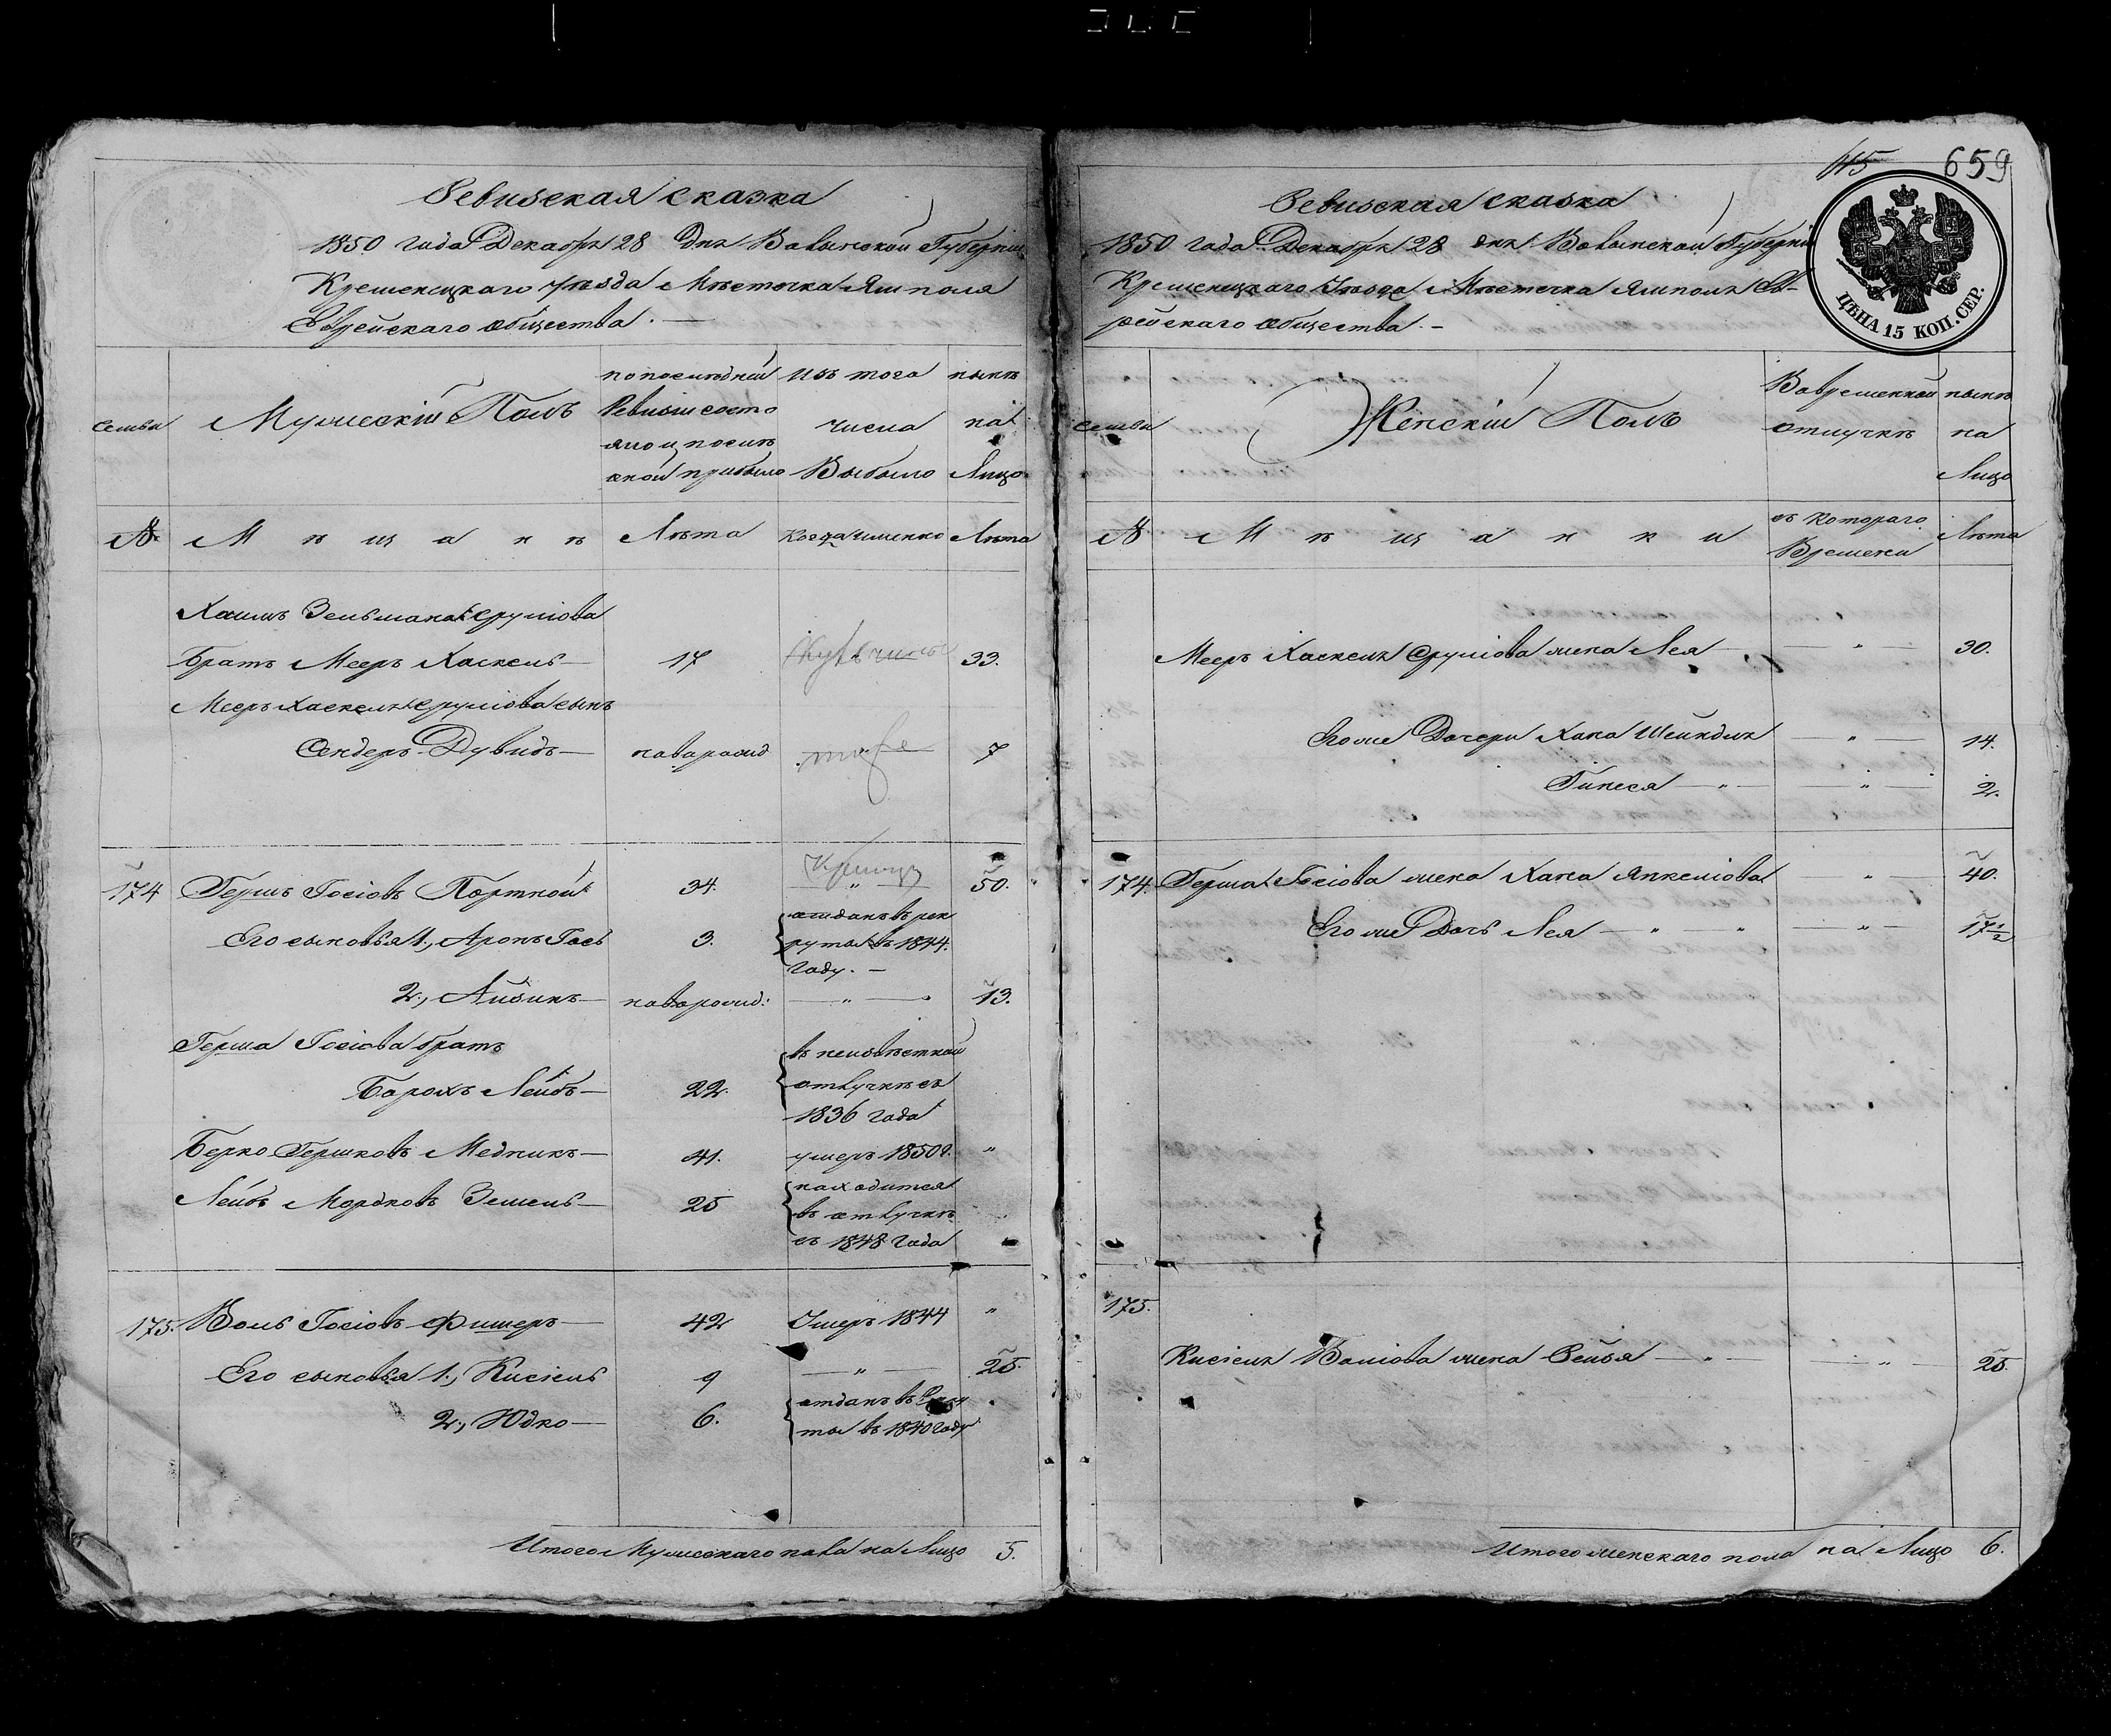 Ревизская сказка
1850 года Декабря 28 дня Волынской Губерніи
Кременецкаго уѣзда Мѣстечка Ямполя
Еврейскаго общества. —
Семьи
Мужескій Полъ
по последней
Ревизіи состо
яло и послѣ
оной прибыло
Изъ того
числа
Выбыло
нынѣ
на
Лицо
№
М ѣ щ а н ѣ
Лѣта
Когда именно
Лѣта
Хаимъ Зельмана Сруліова
братъ Мееръ Хаскель — 17 33.
Мееръ Хаскеля Сруліова сынъ
Сендеръ Дувидъ — новорожд 7
174 Гершъ Іосіовъ Портной 34. " 50.
Его сыновья 1., Аронъ Іось 3. отданъ въ рек
руты въ 1844.
году. —
2., Айзикъ — новорожд: — " — 13.
Герша Іосіова братъ
Барохъ Лейбъ — 22. въ неизвѣстной
отлучкѣ съ
1836 года
Берко Гершковъ Медникъ — 41. умеръ 1850г. "
Лейбъ Мордковъ Земель — 25 находится
въ отлучкѣ
съ 1848 года
175. Воль Іосіовъ Фишеръ — 42 Умеръ 1844 "
Его сыновья 1., Кисіель 9 — " — 25.
2., Юдко — 6. отданъ въ
ты въ 1840 году
Итого Мужескаго пола на Лицо 5.
415 659
ЦѢНА 15 КОП. СЕР.
Ревизская сказка
1850 года Декабря 28 дня Волынской Губерніи
Кременецкаго Уѣзда Мѣстечка Ямполя Ев-
рейскаго общества. —
Семьи
Женскій Полъ
Во временной
отлучкѣ
нынѣ
на
Лицо
№
М ѣ щ а н к и
съ котораго
Времени
Лѣта
Мееръ Хаскеля Сруліова жена Лея — " — 30.
Его же Дочери Хана Шейндля — " — 14.
Гинеся — " — — " — 2.
174. Герша Іосіова жена Хана Янкеліова — " — 40.
Его же Дочь Лея — " — " — " — 17 1/2
175.
Кисіеля Воліова жена Рейзя — " — — " — 25.
Итого женскаго пола на Лицо 6.